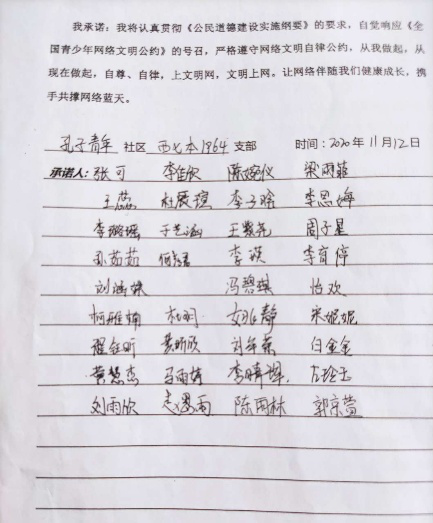 我承诺：我将认真贯彻《公民道德建设实施纲要》的要求，自觉响应《全
国青少年网络文明公约》的号召，严格遵守网络文明自律公约，从我做起，从
现在做起，自尊、自律，上文明网，文明上网。让网络伴随我们健康成长，携
手共撑网络蓝天。
孔子青年 社区 西七本1964 支部 时间：2020年11月12日
承诺人：张可 李佳欣 陈婉仪 梁雨菲
王蕊 李子晗 李思梅
李璐瑶 王紫尧 周子星
孙茹茹 李瑛 李育停
刘涵妹 冯碧琪 怡欢
柯雅楠 杜明 静 宋妮妮
翟钰昕 黄昕欣 白金金
黄慧杰 马雨婷 李晴 左玲玉
刘雨欣 雨 陈雨林 郭京萱